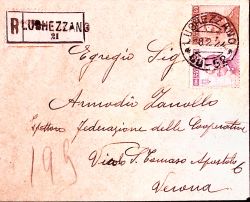 R LUGHEZZANO
21
LUGHEZZANO
Egregio Sig
Armodio Zanvello
Ispettore Federazione delle Cooperative
Vicolo S. Tomaso Apostolo 6
Verona
199